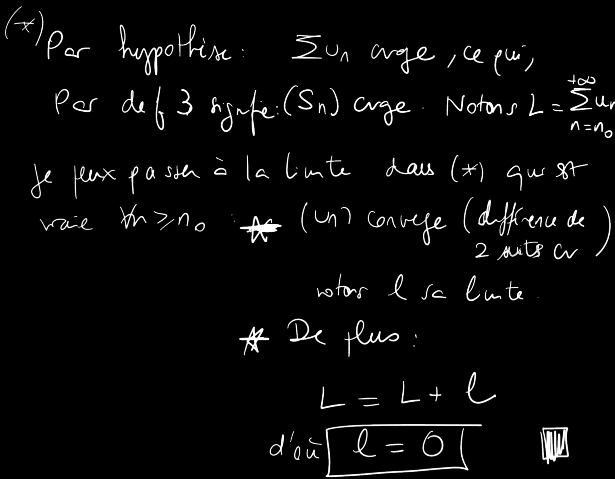 (*) Par hypothèse : Σun cvge, ce qui,
Par def 3 signifie : (Sn) cvge. Notons L = Σ_{n=n0}^{+∞} un
je peux passer à la limite dans (*) qui est
vraie ∀n ≥ n0 : * (un) converge (différence de
2 suites cv)
notons l sa limite.
* De plus :
L = L + l
d'où l = 0